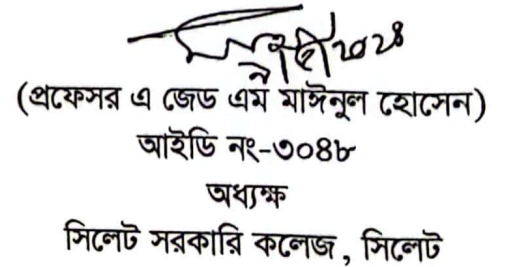 (প্রফেসর এ জেড এম মাঈনুল হোসেন)
আইডি নং-৩০৪৮
অধ্যক্ষ
সিলেট সরকারি কলেজ, সিলেট